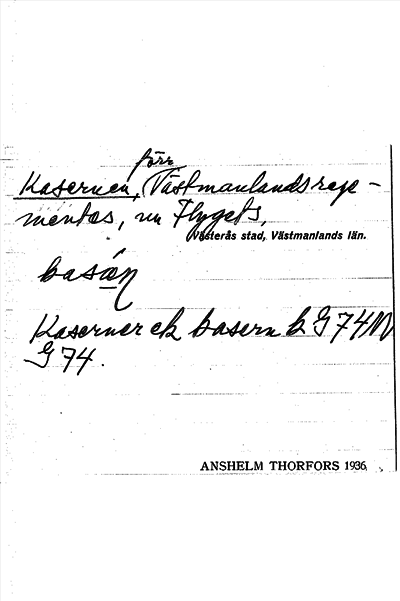 förr
Kasernen, Västmanlandsrege-
mentes, nu Flygets,
Västerås stad, Västmanlands län.
Kaserner ek kasern k G 74 NV
G 74.
ANSHELM THORFORS 1936.